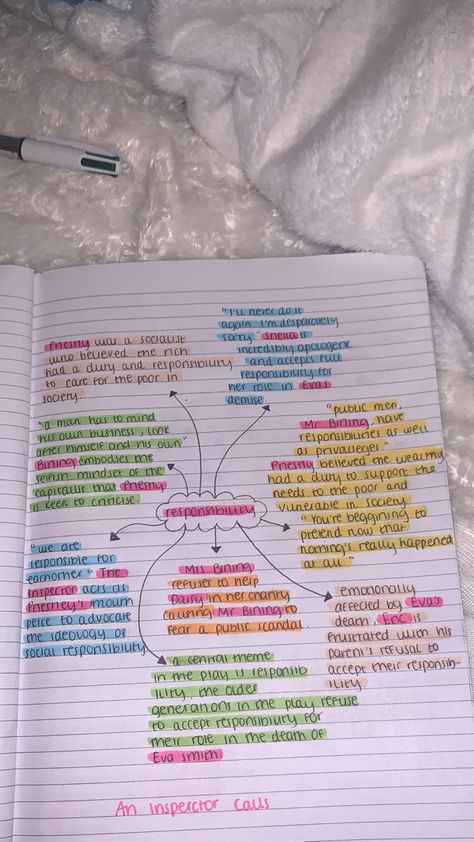 Priestly was a socialist
who believed the rich
had a duty and responsibility
to care for the poor in
society.
"I'll never do it
again. I'm desparately
sorry" Sheila is
incredibly apologetic
and accepts full
responsibility for
her role in Eva's
demise.
"a man has to mind
his own business, look
after himself and his own"
Birling embodies the
selfish mindset of the
capitalist that Priestly
is keen to criticise.
"public men,
Mr Birling, have
responsibilities as well
as privalleges"
Priestly believed the wealthy
had a duty to support the
needs to the poor and
vunerable in society.
"You're beggining to
pretend now that
nothing's really happened
at all"
responsibility
"we are
responsible for
eachother" The
Inspector acts as
Priestley's mouth
peice to advocate
the ideology of
social responsibility
Mrs Birling
refuses to help
Daisy in her charity
causing Mr Birling to
fear a public scandal.
emotionally
affected by Eva's
death, Eric is
frustrated with his
parent's refusal to
accept their responsib-
ility.
a central theme
in the play is responsib
ility. the older
generations in the play refuse
to accept responsibility for
their role in the death of
Eva Smith.
An Insperctor Calls